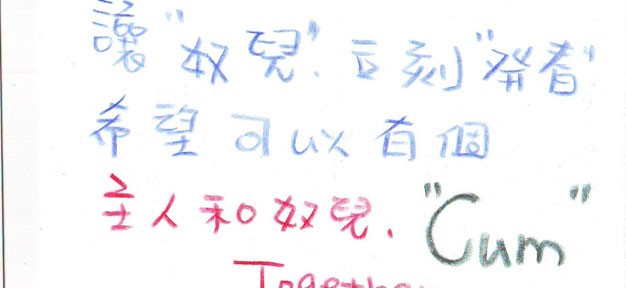 讓"奴兒".立刻"發春"
希望可以有個
主人和奴兒."Cum"
Together